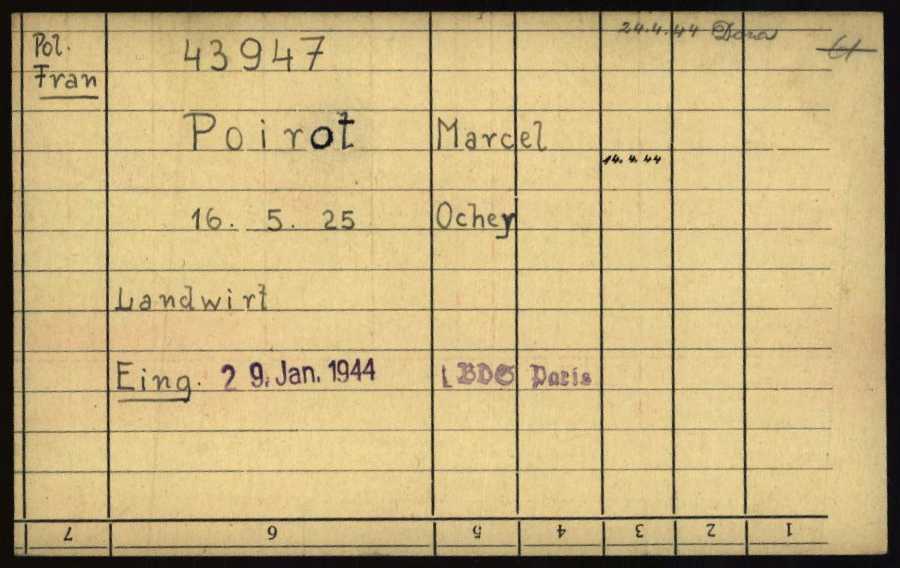 24.4.44 Dora
61
Pol.
Fran
43947
Poirot Marcel
14. 4. 44
16. 5. 25 Ochey
Landwirt
Eing. 29. Jan. 1944 BDS Paris
7 6 5 4 3 2 1